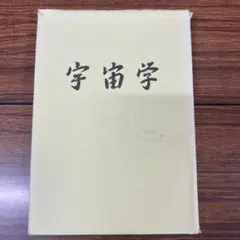 宇宙学